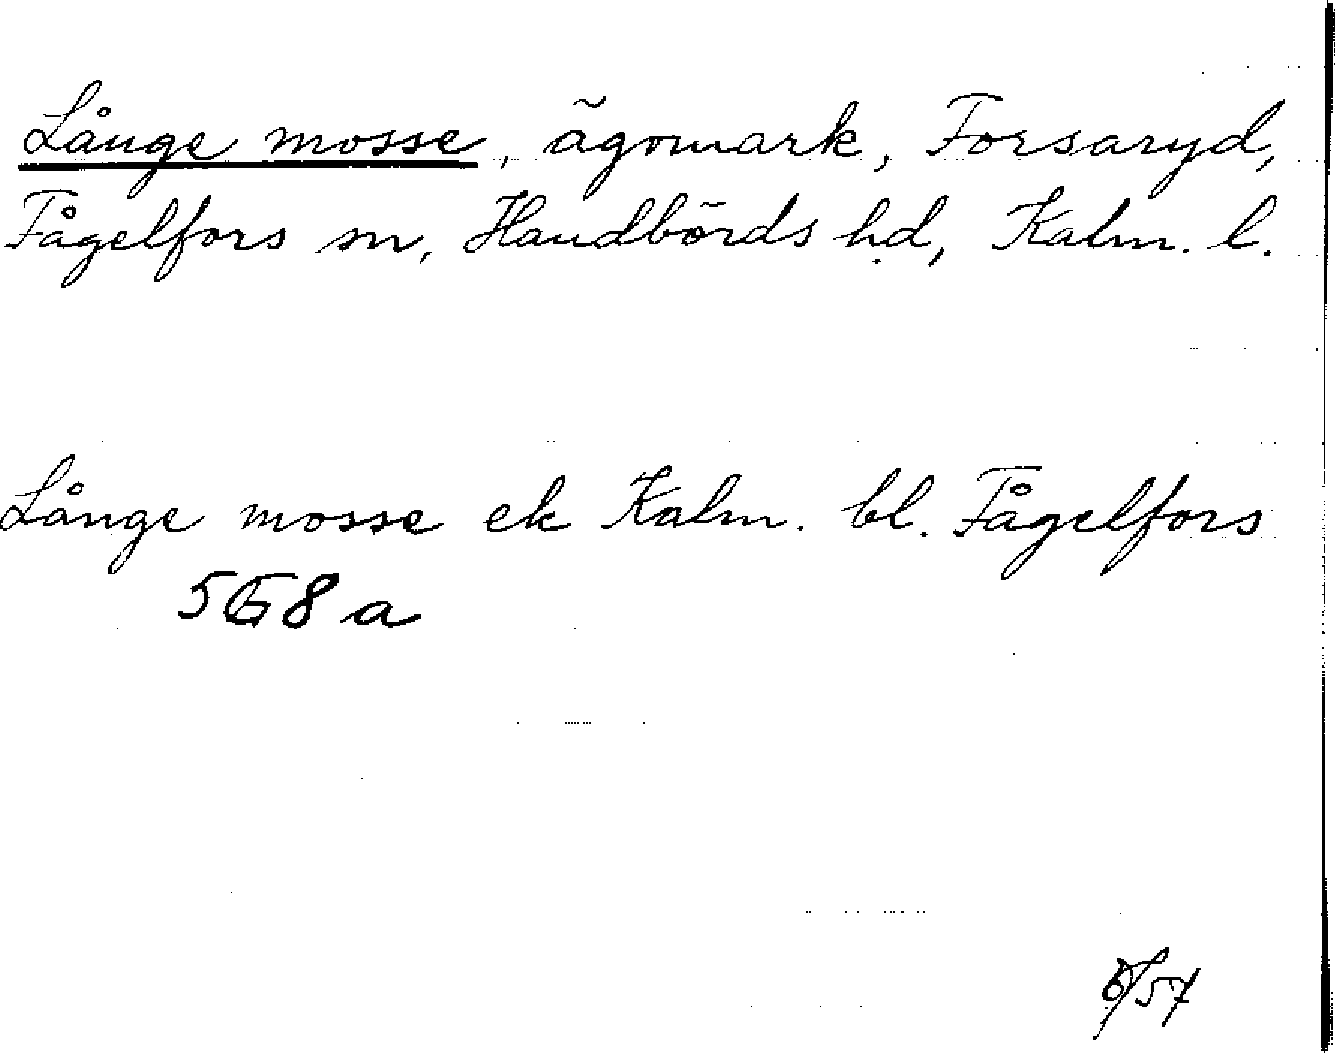 Långe mosse, ägomark, Forsaryd,
Fågelfors sn, Handbörds hd, Kalm. l.
Långe mosse ek Kalm. bl. Fågelfors
a